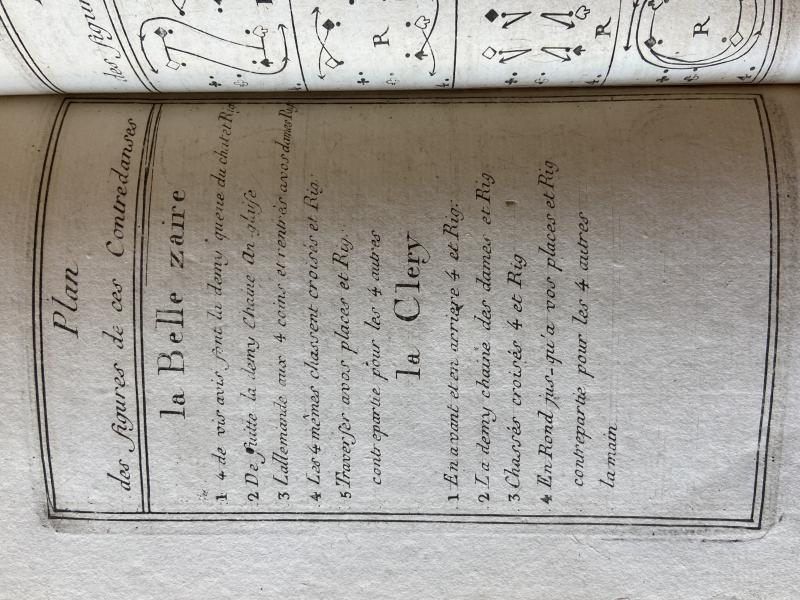 Plan
des figures de ces Contredanses
la Belle zaire
1 4 de vis avis font la demy queue du chat et Rig
2 De suitte la demy Chaine An glaise
3 Lallemande aux 4 coins et rentrés avos dames Rig
4 Les 4 mêmes chassent croisés et Rig:
5 Traverser avos places et Rig:
contrepartie pour les 4 autres
la Clery
1 En avant et en arriere 4 et Rig:
2 La demy chaine des dames et Rig
3 Chassés croisés 4 et Rig
4 En Rond jus-qu'a vos places et Rig
contrepartie pour les 4 autres
la main
des figur
R
R
R